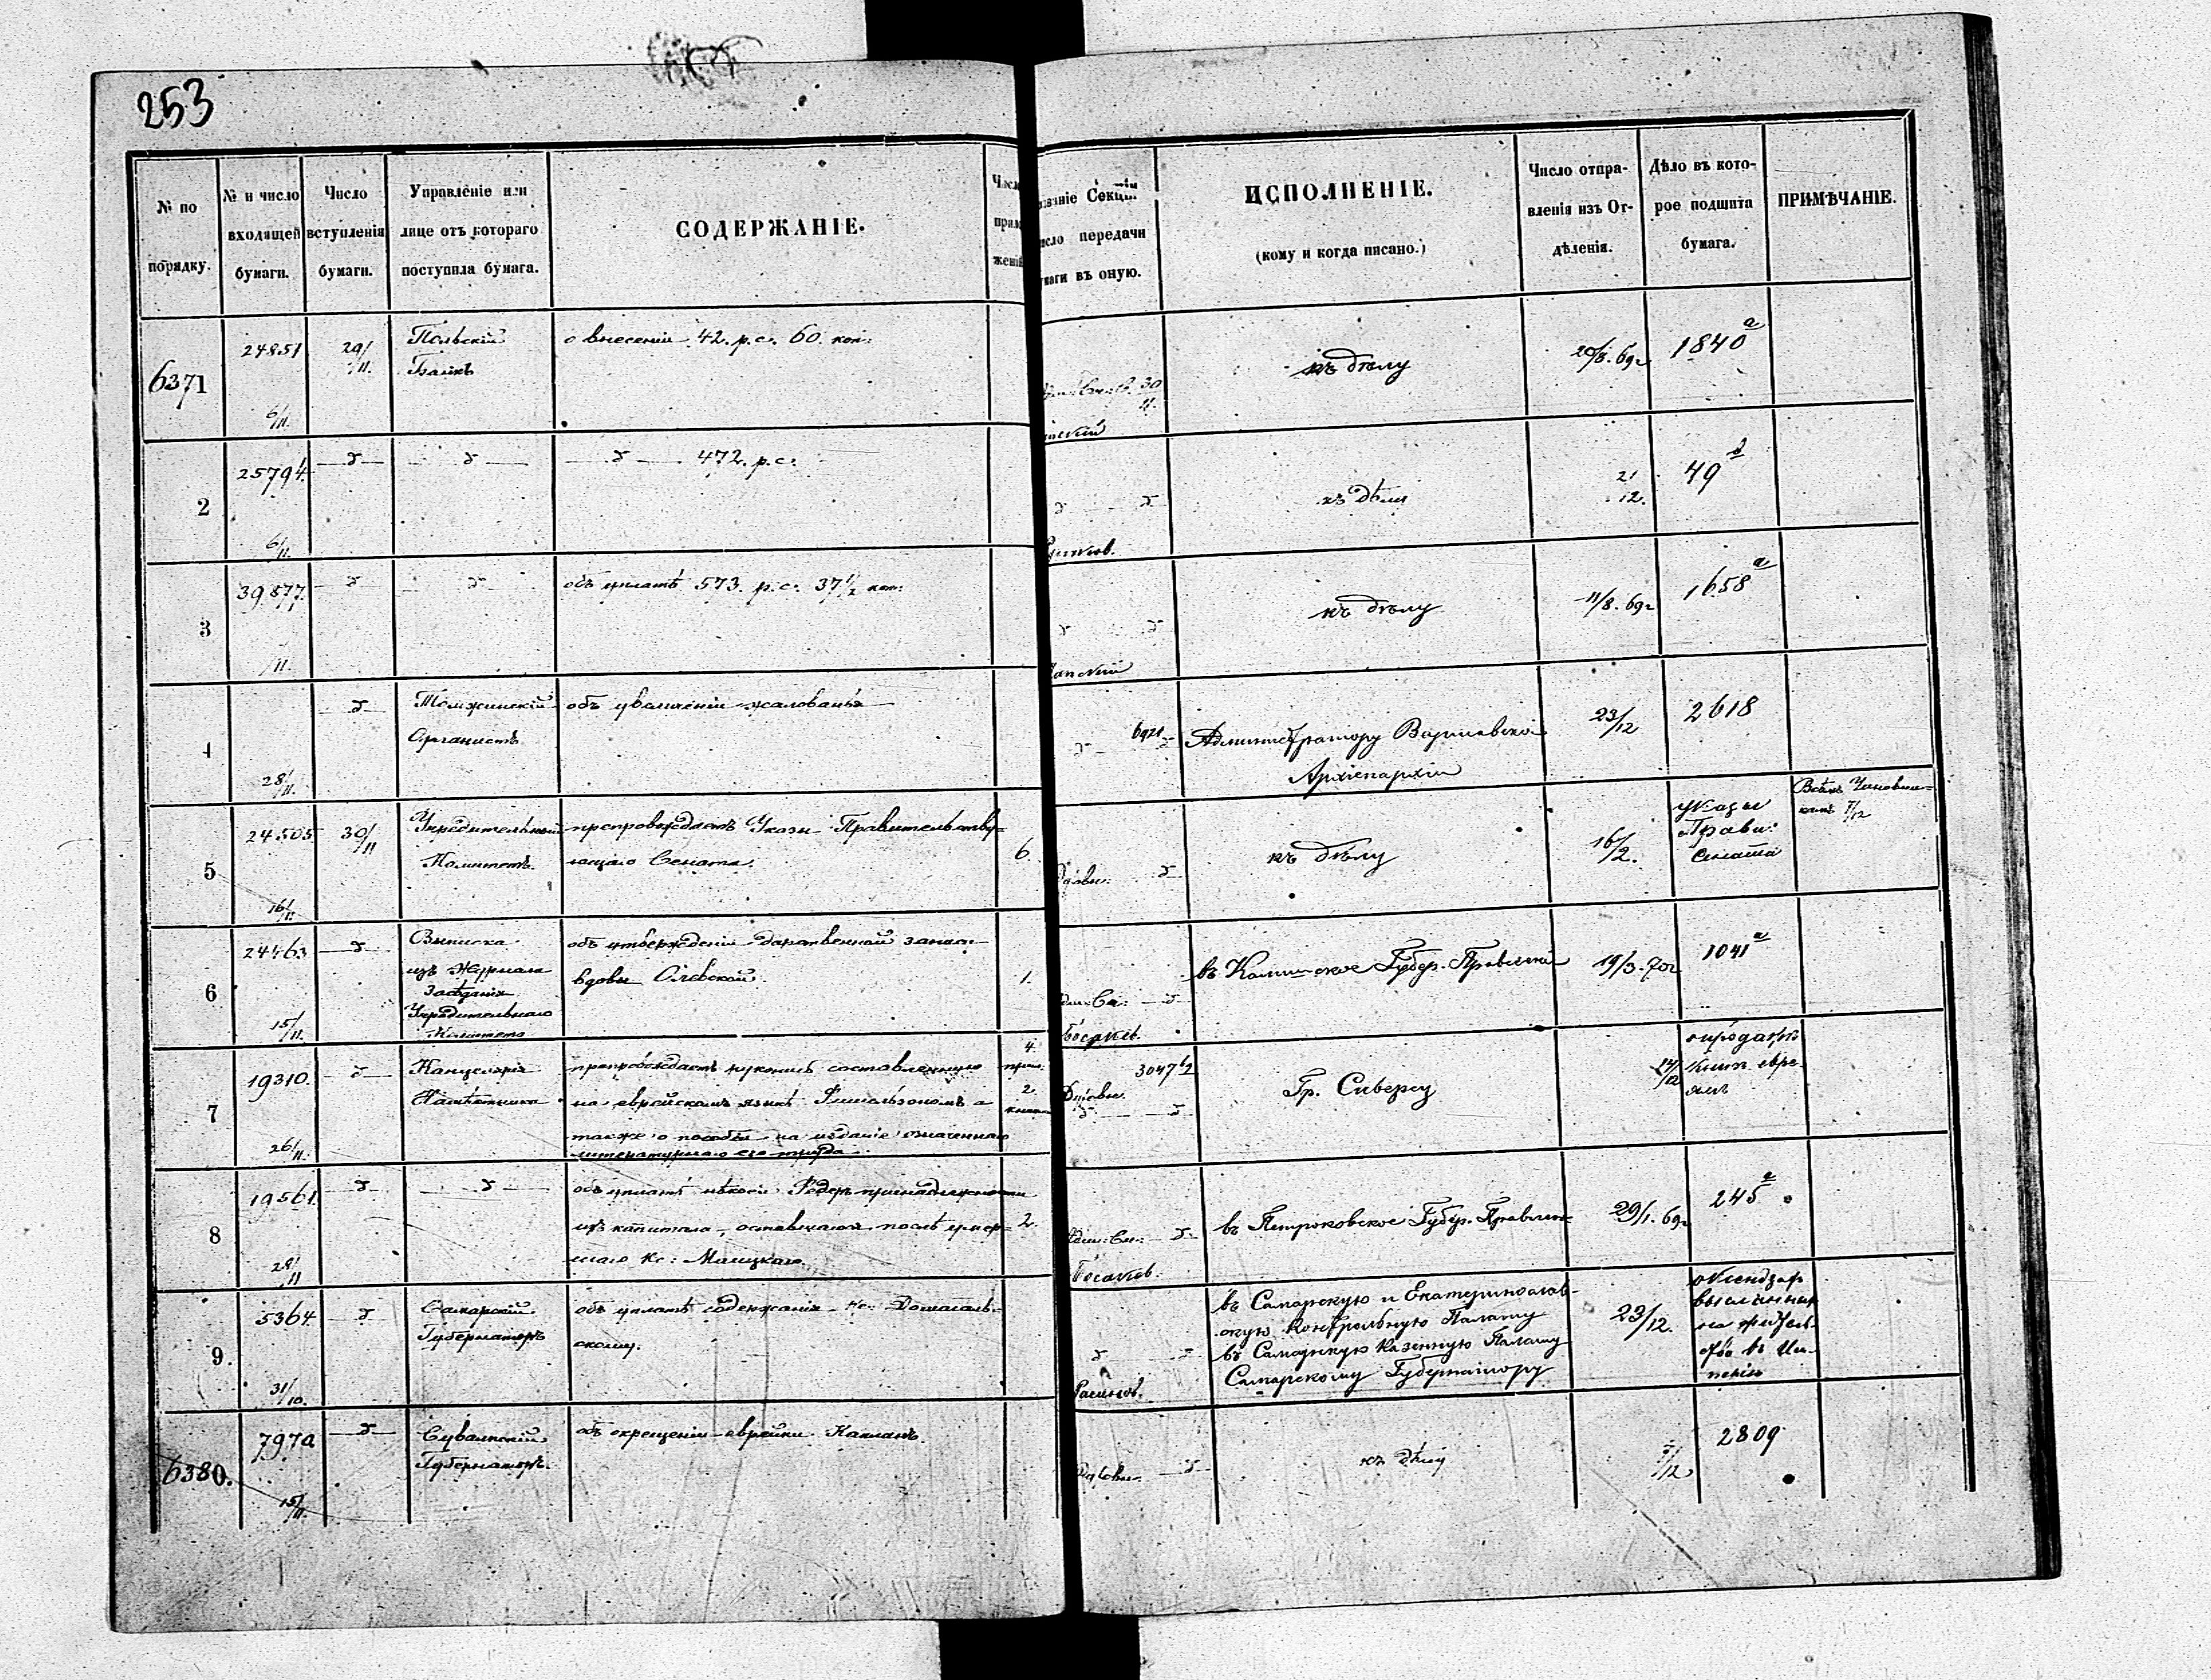 253
№ по порядку.
№ и число входящей бумаги.
Число вступленія бумаги.
Управленіе или лице отъ котораго поступила бумага.
СОДЕРЖАНІЕ.
Секціи
передачи
въ оную.
ИСПОЛНЕНІЕ.
(кому и когда писано.)
Число отправленія изъ Отдѣленія.
Дѣло въ которое подшита бумага.
ПРИМѢЧАНІЕ.
6371
24851
6/11.
29/11.
Польскій
Банкъ
о внесеніи 42. р. с. 60. коп:
30
11.
къ дѣлу
20/8. 69г
1840 а
2
25794.
6/11.
472. р. с:
къ дѣлу
21
12.
49
3
39.877.
/11.
объ уплатѣ 573. р. с: 37 1/2 коп:
къ дѣлу
11/8. 69г
1658 а
4
28/11.
Ломжинскій
Органистъ
объ увеличеніи жалованья
6921
Администратору Варшавской
Архіепархіи
23/12
2618
5
24.505
16/11.
30/11
Учредительный
Комитетъ.
препровождаетъ Указы Правительству-
ющаго Сената.
6.
къ дѣлу
16/2.
указы
Прави:
Сената
Всѣмъ Чиновни-
камъ 7/12
6
24463
15/11.
Выписка
изъ Журнала
Засѣданія
Учредительнаго
Комитета
объ утвержденіи дарственной записи
вдовы
1.
въ Калишское Губер. Правленіе
19/3. 70г
1041 а
7
19310.
26/11.
Канцелярія
Намѣстника
препровождаетъ рукопись составленную
на еврейскомъ языкѣ Финкельзономъ а
также о пособіи на изданіе означеннаго
литературнаго его труда.
4.
прил:
2.
книги
3047
Гр. Сиверсу
14/12
о продажѣ
книг. евре-
ямъ
8
19561.
28/11
объ уплатѣ нѣкоей Редеръ принадлежности
изъ капитала, оставшагося послѣ умер-
шаго Кс:
2.
въ Петроковское Губер. Правлен:
29/1. 69г
245
9.
5364.
31/10.
Самарскій
Губернаторъ
объ уплатѣ содержанія Кс:
скому.
въ Самарскую и Екатеринослав-
скую Контрольную Палату
въ Самарскую Казенную Палату
Самарскому Губернатору
23/12.
о Ксендзах
высланных
на житель-
ство въ Им-
перію
6380.
7970
15/11.
Сувалкскій
Губернаторъ.
объ окрещеніи еврейки Капланъ.
къ дѣлу
7/12
2809